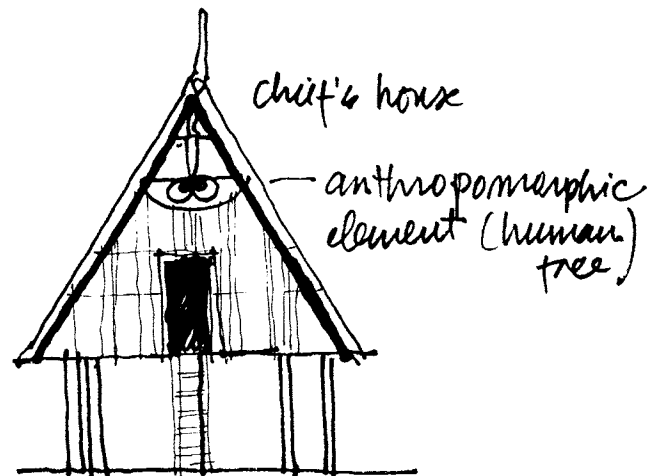 chief's house
anthropomorphic
element (human.
tree)